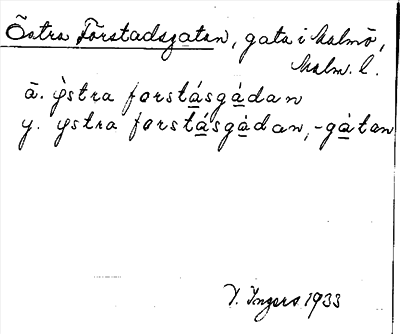 Östra Förstadsgatan, gata i Malmö,
Malm. l.
ä. ỳstra forstásgádan
y. ystra forstásgádan, -gátan
I. Ingers 1933